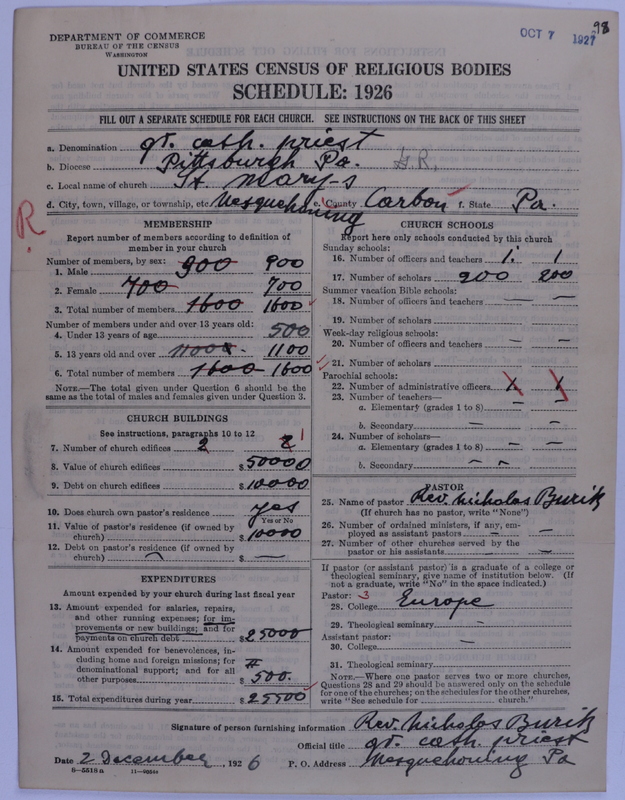 98
DEPARTMENT OF COMMERCE
BUREAU OF THE CENSUS
WASHINGTON
OCT 7 1927
UNITED STATES CENSUS OF RELIGIOUS BODIES
SCHEDULE: 1926
FILL OUT A SEPARATE SCHEDULE FOR EACH CHURCH. SEE INSTRUCTIONS ON THE BACK OF THIS SHEET
a. Denomination gr. cath. priest
b. Diocese Pittsburgh Pa. G.R.
c. Local name of church St. Mary-s
d. City, town, village, or township, etc. Nesquehoning e. County Carbon f. State Pa.
R.
MEMBERSHIP
Report number of members according to definition of
member in your church
Number of members, by sex:
1. Male 900 900
2. Female 700 700
3. Total number of members 1600 1600
Number of members under and over 13 years old:
4. Under 13 years of age 500
5. 13 years old and over 1100 1100
6. Total number of members 1600 1600
NOTE.—The total given under Question 6 should be the
same as the total of males and females given under Question 3.
CHURCH BUILDINGS
See instructions, paragraphs 10 to 12
7. Number of church edifices 2 2 1
8. Value of church edifices $50000
9. Debt on church edifices $10000
10. Does church own pastor's residence? yes
Yes or No
11. Value of pastor's residence (if owned by
church) $10000
12. Debt on pastor's residence (if owned by
church) $ —
EXPENDITURES
Amount expended by your church during last fiscal year
13. Amount expended for salaries, repairs,
and other running expenses; for im-
provements or new buildings; and for
payments on church debt $25000
14. Amount expended for benevolences, in-
cluding home and foreign missions; for
denominational support; and for all
other purposes # $500.
15. Total expenditures during year $25500
CHURCH SCHOOLS
Report here only schools conducted by this church
Sunday schools:
16. Number of officers and teachers 1. 1
17. Number of scholars 200 200
Summer vacation Bible schools:
18. Number of officers and teachers — —
19. Number of scholars
Week-day religious schools:
20. Number of officers and teachers — —
21. Number of scholars
Parochial schools:
22. Number of administrative officers
23. Number of teachers—
a. Elementary (grades 1 to 8) — —
b. Secondary — —
24. Number of scholars—
a. Elementary (grades 1 to 8) — —
b. Secondary — —
PASTOR
25. Name of pastor Rev. Nicholas Burik
(If church has no pastor, write "None")
26. Number of ordained ministers, if any, em-
ployed as assistant pastors — —
27. Number of other churches served by the
pastor or his assistants — —
If pastor (or assistant pastor) is a graduate of a college or
theological seminary, give name of institution below. (If
not a graduate, write "No" in the space indicated.)
Pastor: 3
28. College Europe
29. Theological seminary —
Assistant pastor:
30. College —
31. Theological seminary
NOTE.—Where one pastor serves two or more churches,
Questions 28 and 29 should be answered only on the schedule
for one of the churches; on the schedules for the other churches,
write "See schedule for church."
Signature of person furnishing information Rev. Nicholas Burik
Official title gr. cath. priest
Date 2 December, 1926 P. O. Address Nesquehoning Pa
8—5518a 11—9058